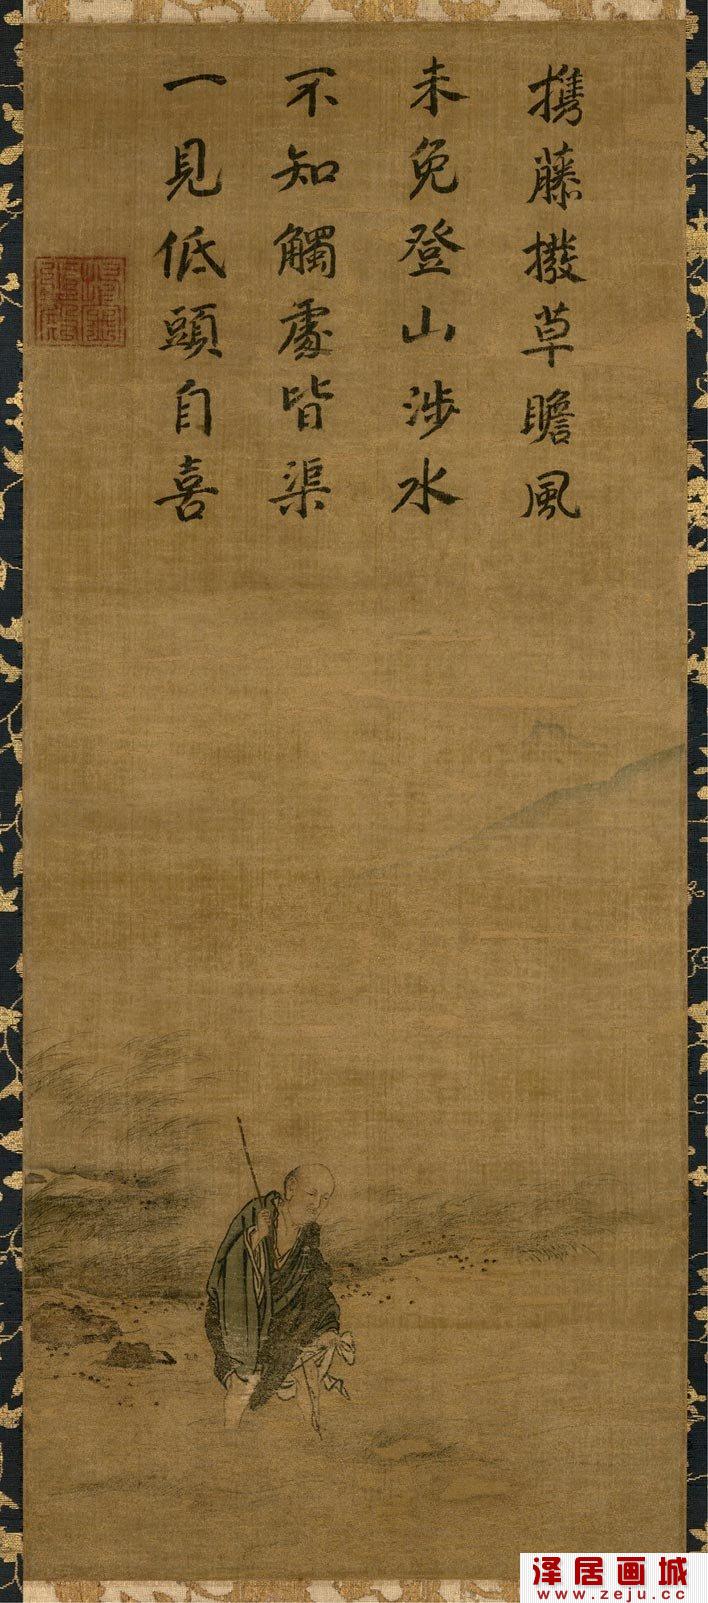 攜藤撥草瞻風
未免登山涉水
不知觸處皆渠
一見低頭自喜
泽居画城
www.zeju.cc